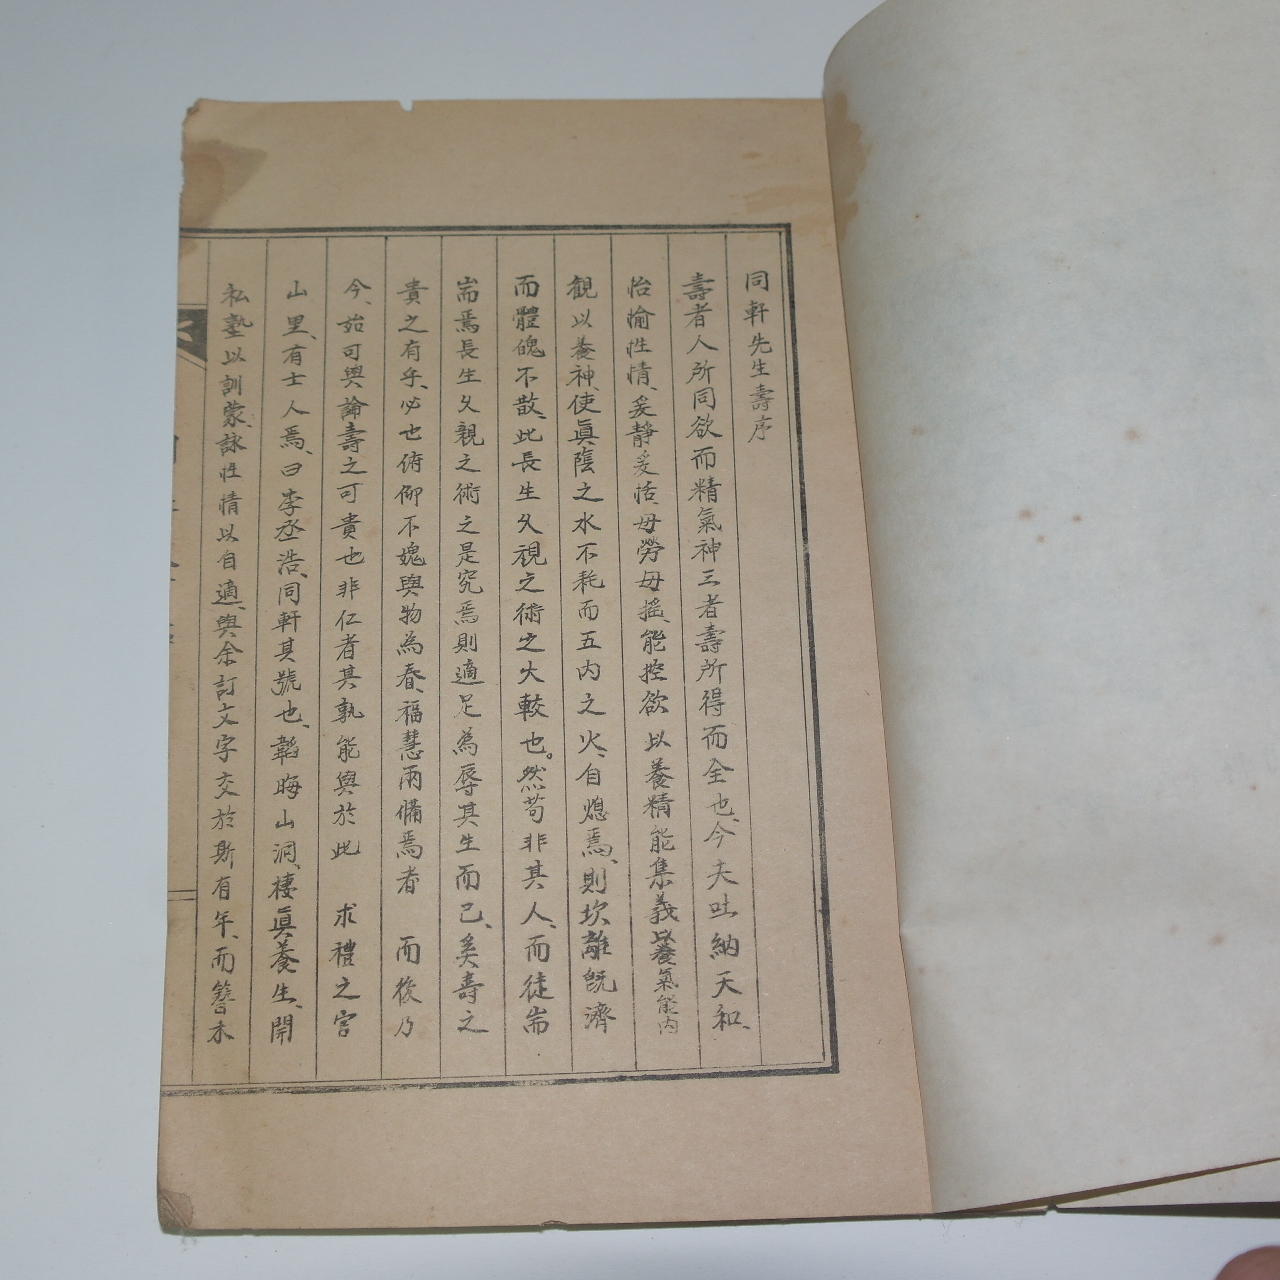 同軒先生壽序
壽者人所同欲而精氣神三者壽所得而全也、今夫吐納天和、
怡愉性情、爰靜爰恬、毋勞毋搖、能控欲以養精能集義以養氣能內
観以養神、使眞陰之水不耗而五內之火、自熄焉、則坎離旣濟
而體魄不散、此長生久視之術之大較也。然苟非其人、而徒耑
耑焉長生久親之術之是究焉則適足為辱其生而已、奚壽之
貴之有乎、必也俯仰不媿與物為春、福慧兩備焉者 而後乃
今、始可與論壽之可貴也非仁者其孰能與於此 求禮之宮
山里、有士人焉、曰李丞浩、同軒其號也、韜晦山洞、棲眞養生、開
私塾以訓蒙、詠性情以自適、與余訂文字交於斯有年、而簪木